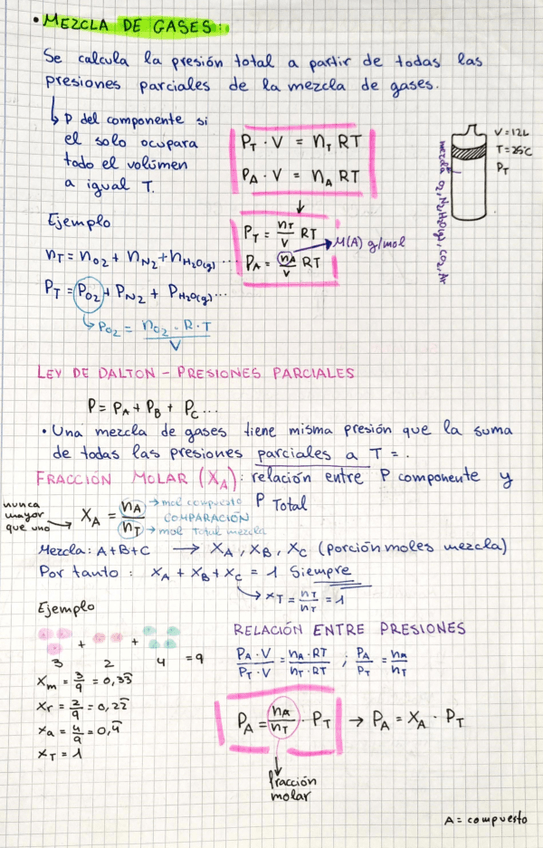 • MEZCLA DE GASES:
Se calcula la presión total a partir de todas las
presiones parciales de la mezcla de gases.
↳ P del componente si
el solo ocupara
todo el volúmen
a igual T.
P_T · V = n_T RT
P_A · V = n_A RT
↓
P_T = n_T/V RT
P_A = n_A/V RT
→ M(A) g/mol
V = 12L
T = 25°C
P_T
mezcla O2, N2, H2O(g), CO2, Ar
Ejemplo
n_T = n_O2 + n_N2 + n_H2O(g) ...
P_T = P_O2 + P_N2 + P_H2O(g) ...
↳ P_O2 = n_O2 · R · T / V
LEY DE DALTON - PRESIONES PARCIALES
P = P_A + P_B + P_C ...
• Una mezcla de gases tiene misma presión que la suma
de todas las presiones parciales a T = .
FRACCIÓN MOLAR (X_A): relación entre P componente y
P Total
nunca
mayor
que uno →
X_A = n_A/n_T
→ mol compuesto
COMPARACIÓN
→ mol total mezcla
Mezcla: A+B+C → X_A, X_B, X_C (porción moles mezcla)
Por tanto: X_A + X_B + X_C = 1 Siempre
↳ X_T = n_T/n_T = 1
Ejemplo
+ +
3 2 4 = 9
X_m = 3/9 = 0,33
X_r = 2/9 = 0,22
X_a = 4/9 = 0,4
X_T = 1
RELACIÓN ENTRE PRESIONES
P_A · V / P_T · V = n_A · RT / n_T · RT ; P_A/P_T = n_A/n_T
P_A = n_A/n_T · P_T → P_A = X_A · P_T
↓
fracción
molar
A = compuesto